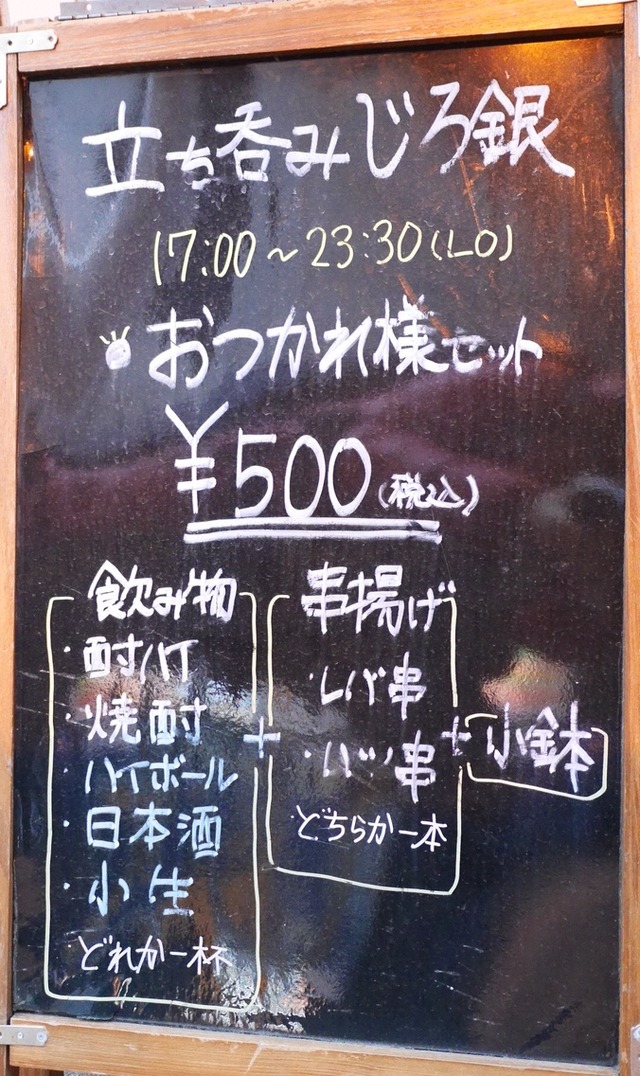 立ち呑みじろ銀
17:00～23:30(LO)
おつかれ様セット
¥500(税込)
飲み物
・酎ハイ
・焼酎
・ハイボール
・日本酒
・小生
どれか一杯
+
串揚げ
・レバ串
・ハツ串
どちらか一本
+
小鉢